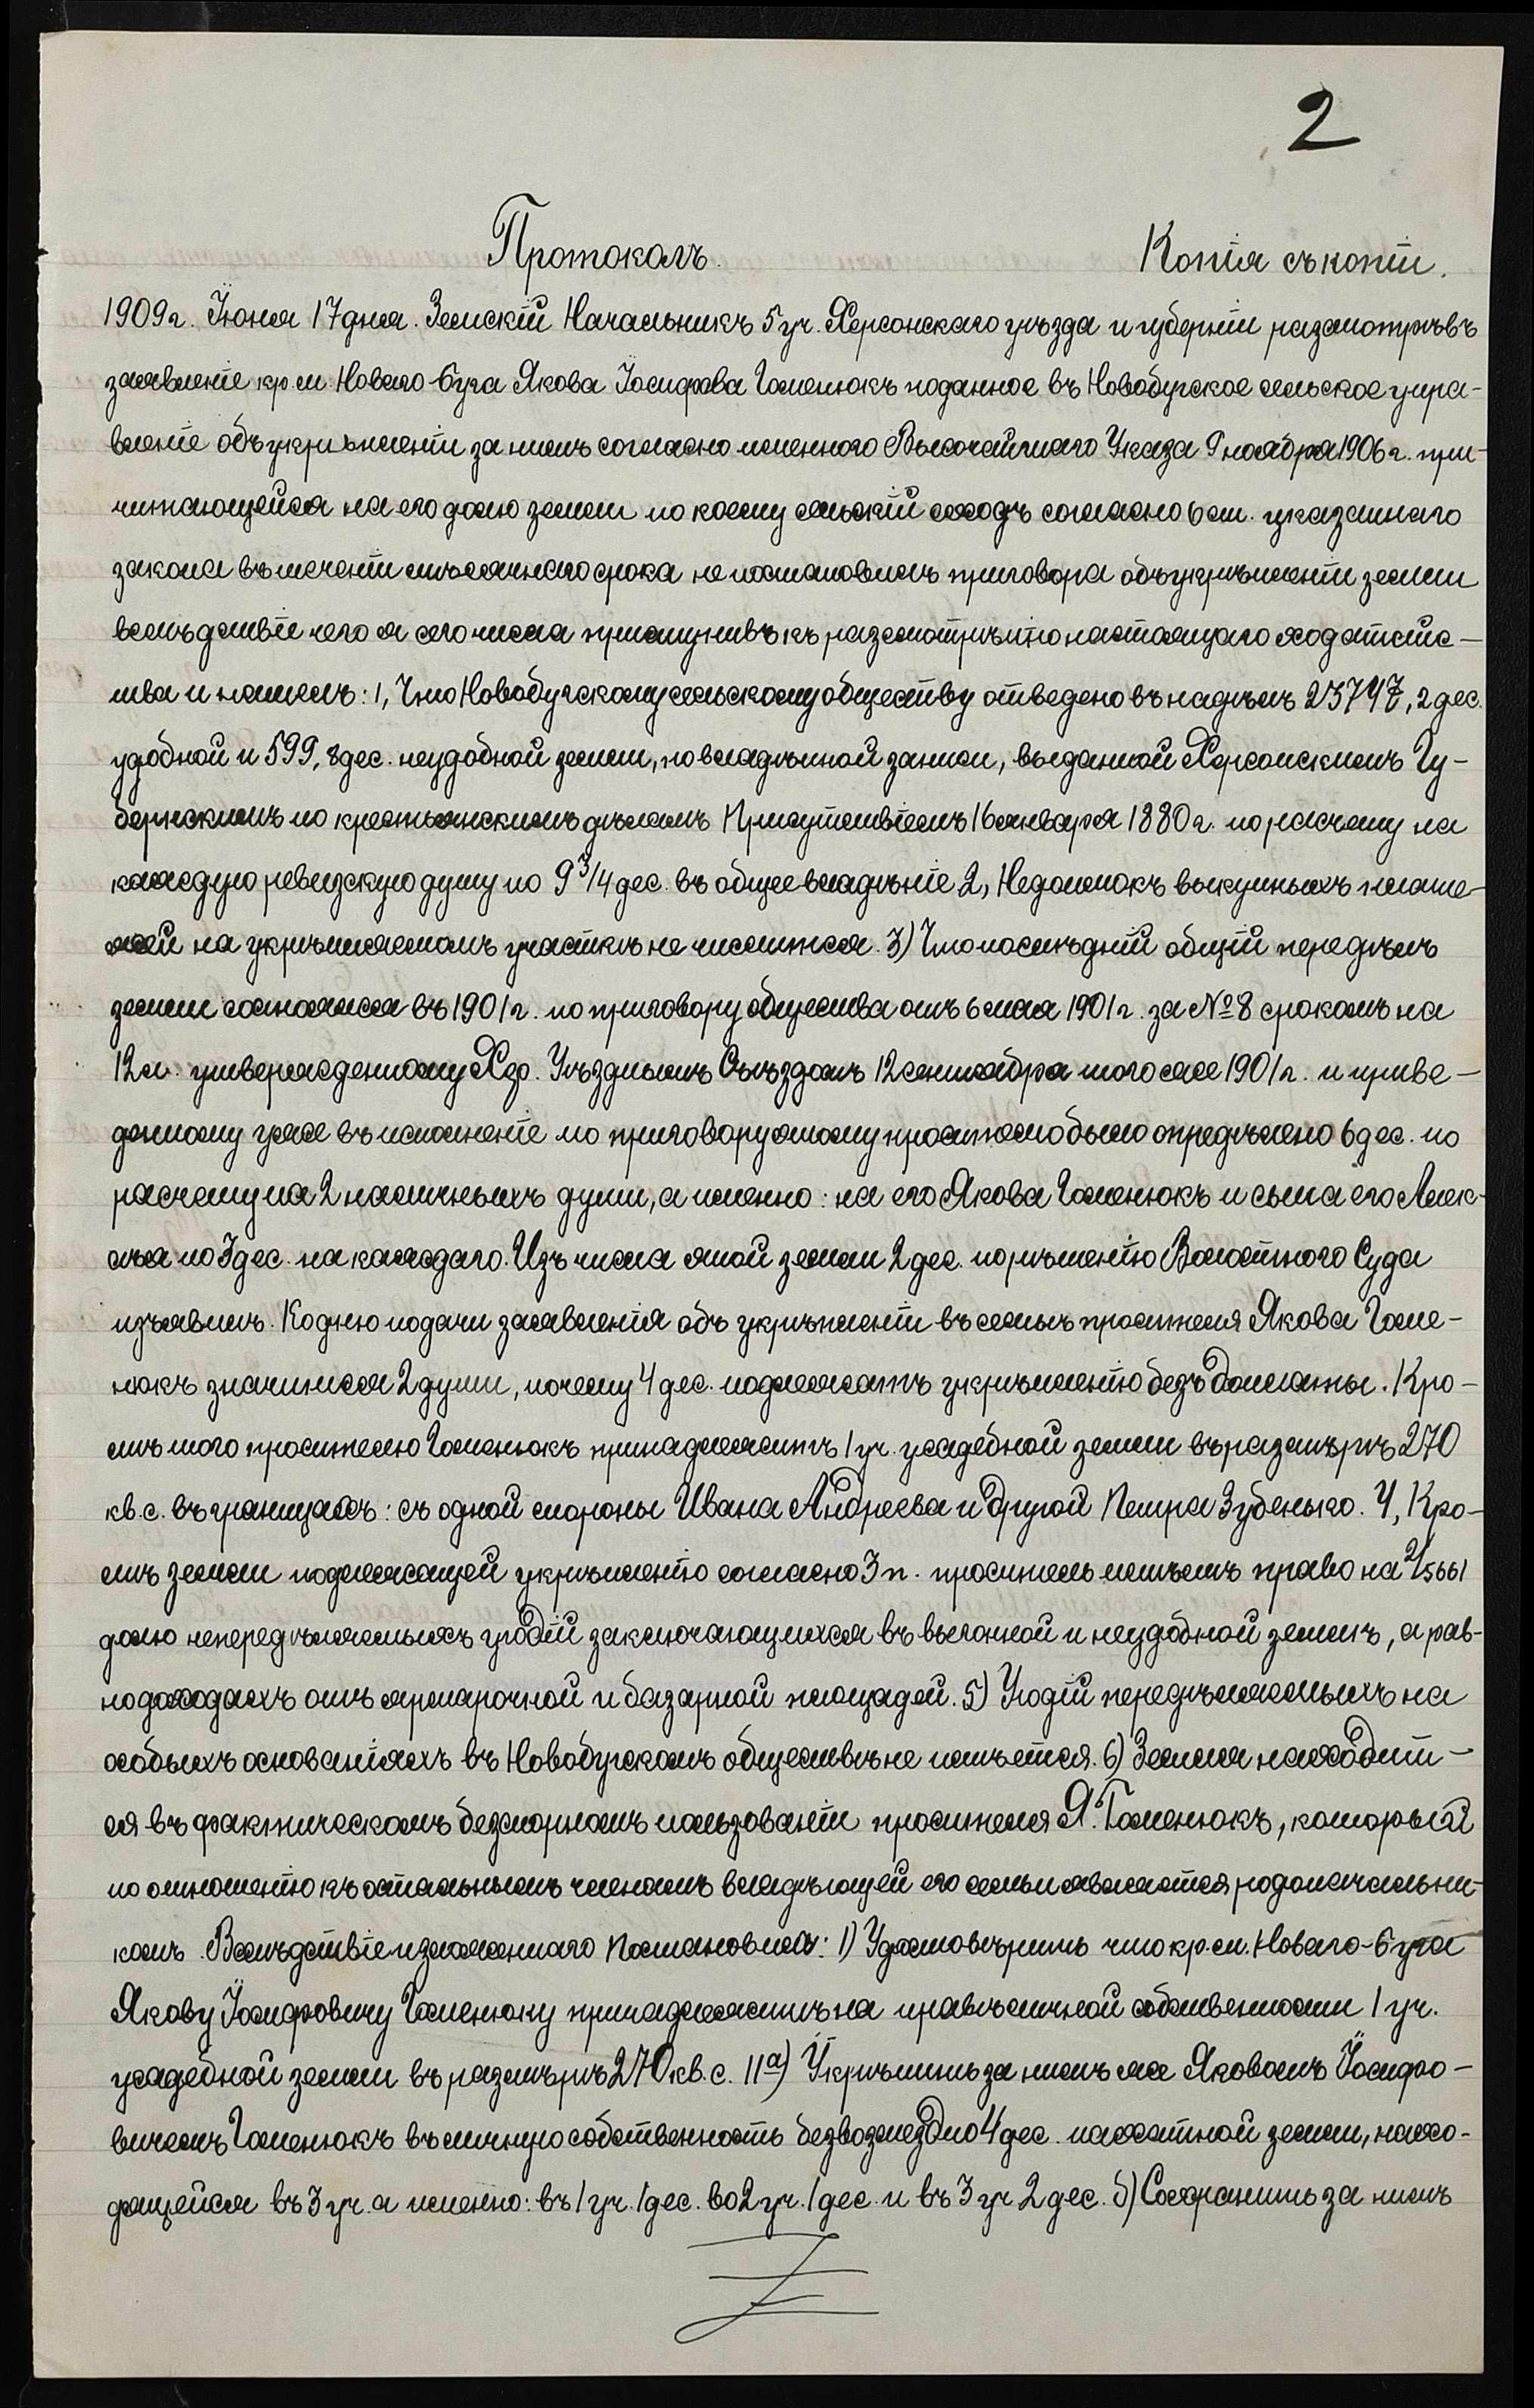 2
Протоколъ.
Копія съ копіи.
1909 г. Іюня 17 дня. Земскій Начальникъ 5 уч. Херсонскаго уѣзда и губерніи разсмотрѣвъ
заявленіе кр. м. Новаго-Буга Якова Іосифова Гоменюкъ поданное въ Новобугское сельское упра-
вленіе объ укрѣпленіи за нимъ согласно именного Высочайшаго Указа 9 ноября 1906 г. при-
читающейся на его долю земли по коему сельскій сходъ согласно 6 ст. указаннаго
закона въ теченіи мѣсячнаго срока не постановилъ приговора объ укрѣпленіи земли
вслѣдствіе чего я сего числа приступивъ къ разсмотрѣнію настоящаго ходатайс-
тва и нашелъ: 1, Что Новобугскому сельскому обществу отведено въ надѣлъ 23747,2 дес.
удобной и 599,8 дес. неудобной земли, по владѣнной записи, выданной Херсонскимъ Гу-
бернскимъ по крестьянскимъ дѣламъ Присутствіемъ 16 января 1880 г. по расчету на
каждую ревизскую душу по 9 3/4 дес. въ общее владѣніе 2, Недоимокъ выкупныхъ плате-
жей на укрѣпляемомъ участкѣ не числится. 3) Что послѣдній общій передѣлъ
земли состоялся въ 1901 г. по приговору общества отъ 6 мая 1901 г. за № 8 срокомъ на
12 л. утвержденному Хер. Уѣзднымъ Съѣздомъ 12 сентября того же 1901 г. и приве-
денному уже въ исполненіе по приговору этому просителю было опредѣлено 6 дес. по
расчету на 2 наличныхъ души, а именно: на его Якова Гоменюкъ и сына его Алек-
сѣя по 3 дес. на каждаго. Изъ числа этой земли 2 дес. по рѣшенію Волостного Суда
изъявилъ. Ко дню подачи заявленія объ укрѣпленіи въ семьѣ просителя Якова Гоме-
нюкъ значится 2 души, почему 4 дес. подлежатъ укрѣпленію безъ доплаты. Кро-
мѣ того просителю Гоменюкъ принадлежитъ 1 уч. усадебной земли въ размѣрѣ 270
кв. с. въ границахъ: съ одной стороны Ивана Андреева и другой Петра Зубенько. 4, Кро-
мѣ земли подлежащей укрѣпленію согласно 3 п. проситель имѣетъ право на 2/5661
долю непередѣляемыхъ угодій заключающихся въ выгонной и неудобной землѣ, а рав-
но доходахъ отъ ярмарочной и базарной площадей. 5) Угодій передѣляемыхъ на
особыхъ основаніяхъ въ Новобугскомъ обществѣ не имѣется. 6) Земля находит-
ся въ фактическомъ безспорномъ пользованіи просителя Я. Гоменюкъ, который
по отношенію къ остальнымъ членамъ владѣющей его семьи является родоначальни-
комъ. Вслѣдствіе изложеннаго Постановилъ: 1) Удостовѣрить что кр. м. Новаго-Буга
Якову Іосифовичу Гоменюку принадлежитъ на правѣ личной собственности 1 уч.
усадебной земли въ размѣрѣ 270 кв. с. II а) Укрѣпить за нимъ же Яковомъ Іосифо-
вичемъ Гоменюкъ въ личную собственность безвозмездно 4 дес. пахатной земли, нахо-
дящейся въ 3 уч. а именно: въ 1 уч. 1 дес. во 2 уч. 1 дес. и въ 3 уч 2 дес. б) Сохранить за нимъ